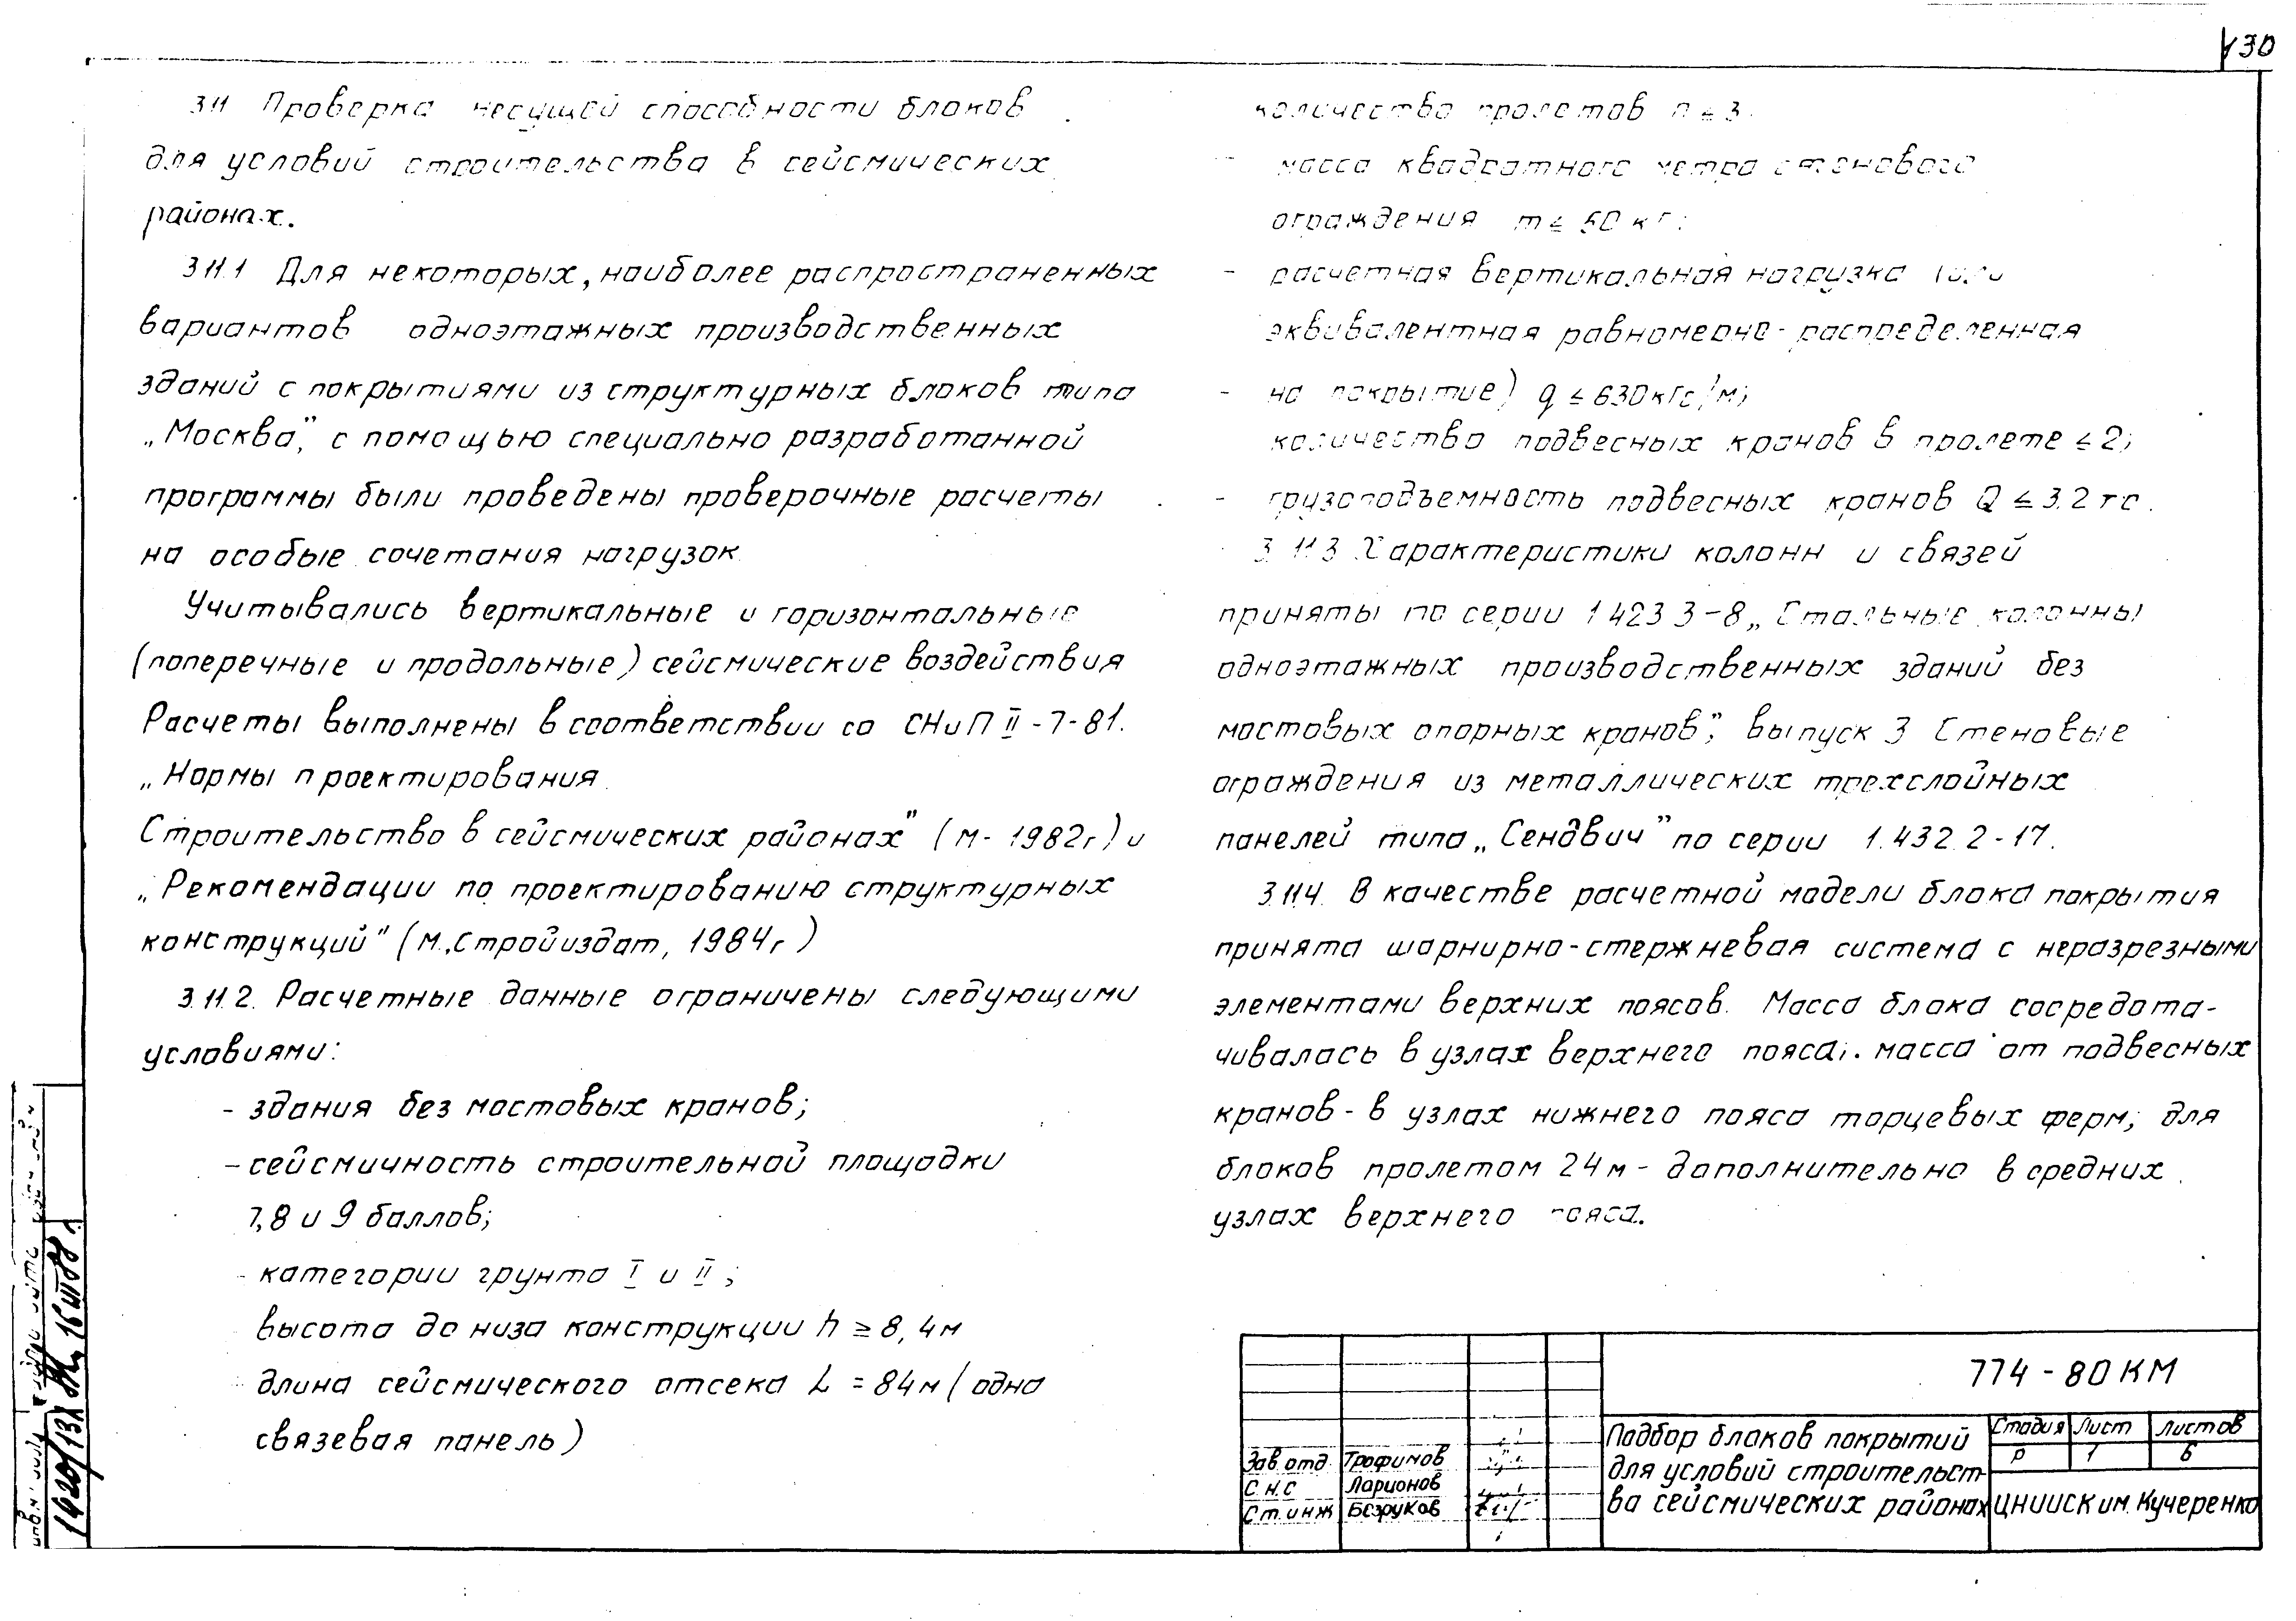 130
3.11 Проверка несущей способности блоков
для условий строительства в сейсмических
районах.
3.11.1 Для некоторых, наиболее распространенных
вариантов одноэтажных производственных
зданий с покрытиями из структурных блоков типа
„Москва", с помощью специально разработанной
программы были проведены проверочные расчеты
на особые сочетания нагрузок
Учитывались вертикальные и горизонтальные
(поперечные и продольные) сейсмические воздействия
Расчеты выполнены в соответствии со СНиП II-7-81.
„Нормы проектирования
Строительство в сейсмических районах" (М- 1982г) и
„Рекомендации по проектированию структурных
конструкций" (М., Стройиздат, 1984г)
3.11.2. Расчетные данные ограничены следующими
условиями:
- здания без мостовых кранов;
- сейсмичность строительной площадки
7,8 и 9 баллов;
- категории грунта I и II;
высота до низа конструкции h ≥ 8,4м
- длина сейсмического отсека L = 84м (одна
связевая панель)
количество пролетов n ≤ 3.
- масса квадратного метра стенового
ограждения m ≤ 50 кг;
- расчетная вертикальная нагрузка (или
эквивалентная равномерно-распределенная
- на покрытие) q ≤ 630кгс/м;
количество подвесных кранов в пролете ≤ 2;
- грузоподъемность подвесных кранов Q ≤ 3.2 тс.
3.11.3 Характеристики колонн и связей
приняты по серии 1.423.3-8 „Стальные колонны
одноэтажных производственных зданий без
мостовых опорных кранов", выпуск 3 Стеновые
ограждения из металлических трехслойных
панелей типа „Сендвич" по серии 1.432.2-17.
3.11.4. В качестве расчетной модели блока покрытия
принята шарнирно-стержневая система с неразрезными
элементами верхних поясов. Масса блока сосредота-
чивалась в узлах верхнего пояса; масса от подвесных
кранов - в узлах нижнего пояса торцевых ферм; для
блоков пролетом 24м - дополнительно в средних
узлах верхнего пояса.
774-80КМ
Подбор блоков покрытий
для условий строительст-
ва сейсмических районах
Стадия Лист Листов
Р 1 6
ЦНИИСК им. Кучеренко
Зав. отд Трофимов
С.Н.С Ларионов
Ст. инж Безруков